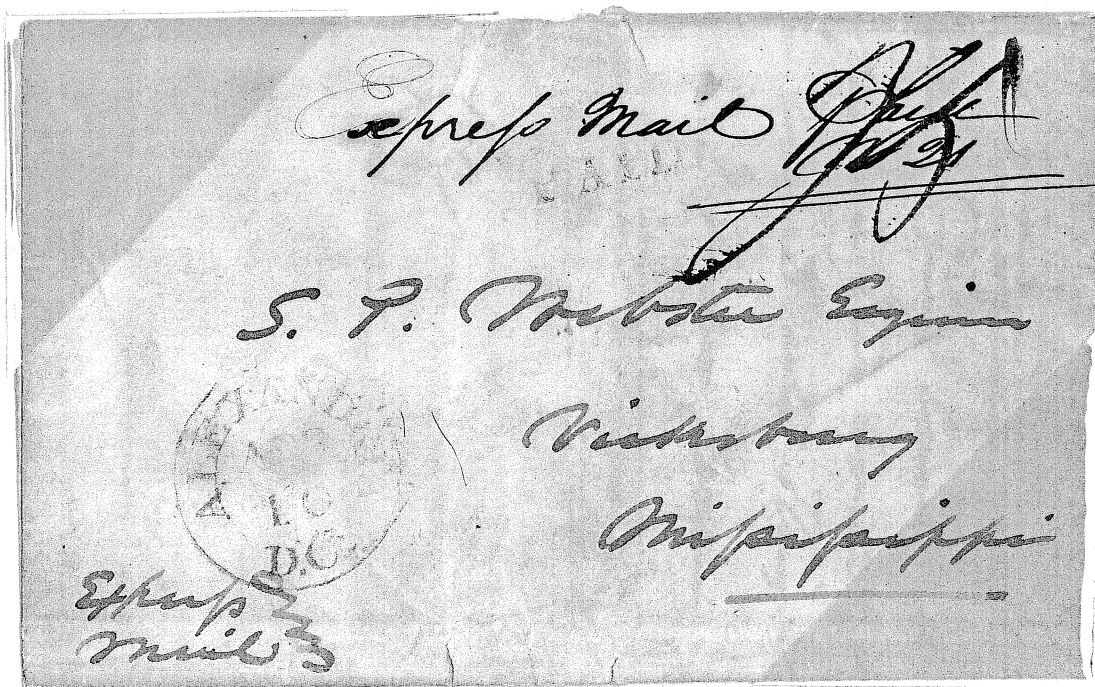 Express Mail Paid
PAID
S. P. Webster Esquire
Vicksburg
Mississippi
ALEXANDRIA
10
D.C.
Express
Mail